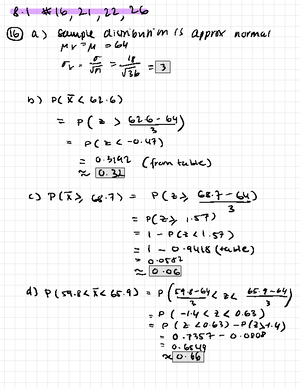 8.1 #16, 21, 22, 26
16 a) sample distribution is approx normal
μx̄ = μ = 64
σx̄ = σ/√n = 18/√36 = 3
b) P(x̄ < 62.6)
= P(z > 62.6-64/3)
= P(z < -0.47)
= 0.3192 (from table)
≈ 0.32
c) P(x̄ ⩾ 68.7) = P(z ⩾ 68.7-64/3)
= P(z ⩾ 1.57)
= 1 - P(z < 1.57)
= 1 - 0.9418 (table)
= 0.0582
≈ 0.06
d) P(59.8 < x̄ < 65.9) = P(59.8-64/3 < z < 65.9-64/3)
= P(-1.4 < z < 0.63)
= P(z < 0.63) - P(z > -1.4)
= 0.7357 - 0.0808
= 0.6549
≈ 0.66